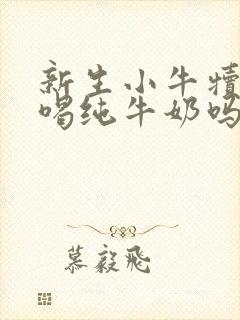 新生小牛犊
喝纯牛奶吗
慕毅飞